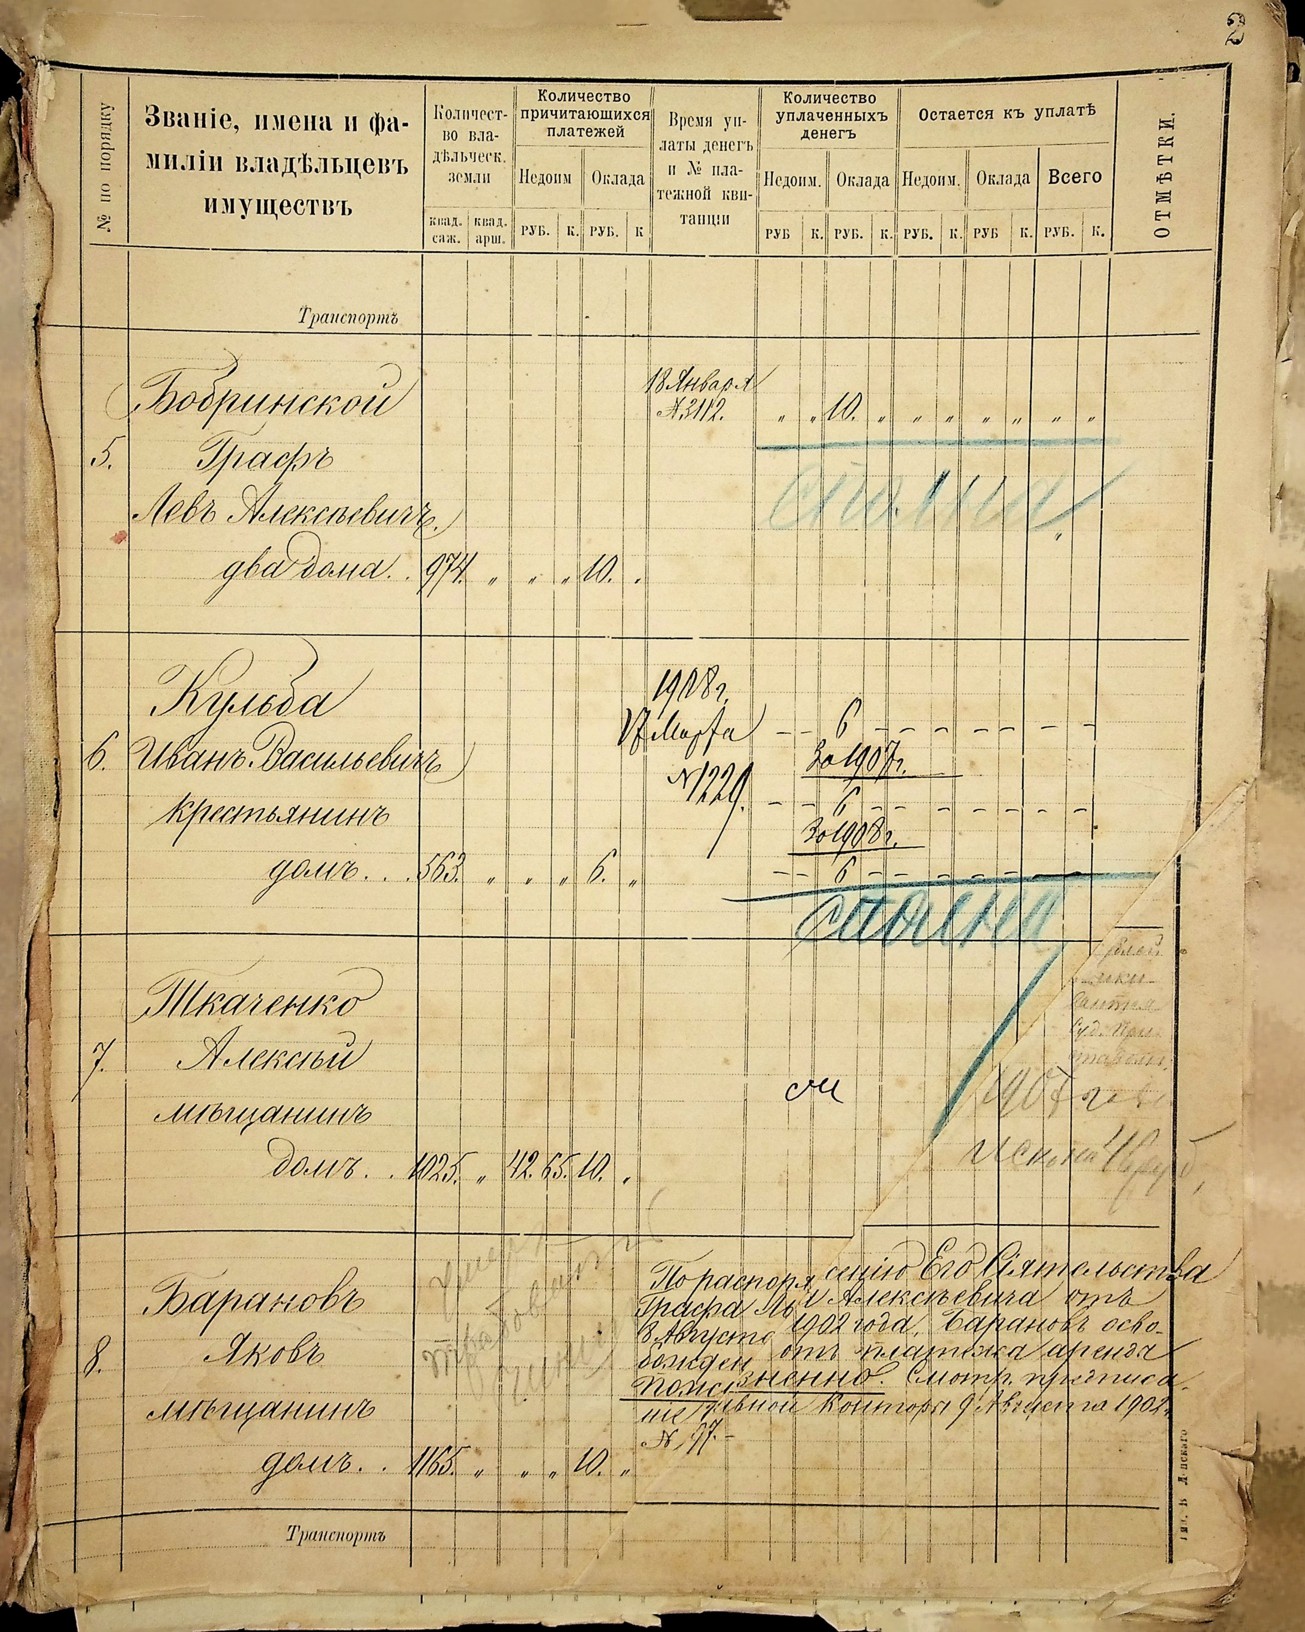 2
№ по порядку
Званіе, имена и фа-
миліи владѣльцевъ
имуществъ
Количест-
во вла-
дѣльческ.
земли
квад. саж. квад. арш.
Количество
причитающихся
платежей
Недоим Оклада
РУБ. К. РУБ. К
Время уп-
латы денегъ
и № пла-
тежной кви-
танціи
Количество
уплаченныхъ
денегъ
Недоим. Оклада
РУБ К. РУБ. К.
Остается къ уплатѣ
Недоим. Оклада Всего
РУБ. К. РУБ К. РУБ. К.
ОТМѢТКИ.
Транспортъ
Бобринской 18 Января
№ 3112. „ „ 10. „ „ „ „ „ „ „
5. Графъ
Левъ Алексѣевичъ. сполна
два дома. . 974. „ „ „ 10. „
Кульба 1908 г.
17 Марта – – 6 – – – – – – –
6. Иванъ Васильевичъ За 1907 г.
№ 1229. – – 6 – – – – – – –
крестьянинъ За 1908 г.
домъ. . . 563. „ „ „ 6. „ – – 6 – – – – – – –
сполна
Ткаченко
7. Алексѣй
мѣщанинъ
домъ. . 1025. „ 42. 65. 10. „
1907
Барановъ
8. Яковъ
мѣщанинъ
домъ. . 1165. „ „ „ 10. „
По распоря сенію Его Сіятельства
Графа Ль Алексѣевича отъ
8 Августа 1902 года, Барановъ осво-
божден отъ платежа аренды
пожи зненно. Смотр. предписа-
ніе вной Конторы 9 Августа 1902 г.
№ 97. –
Транспортъ